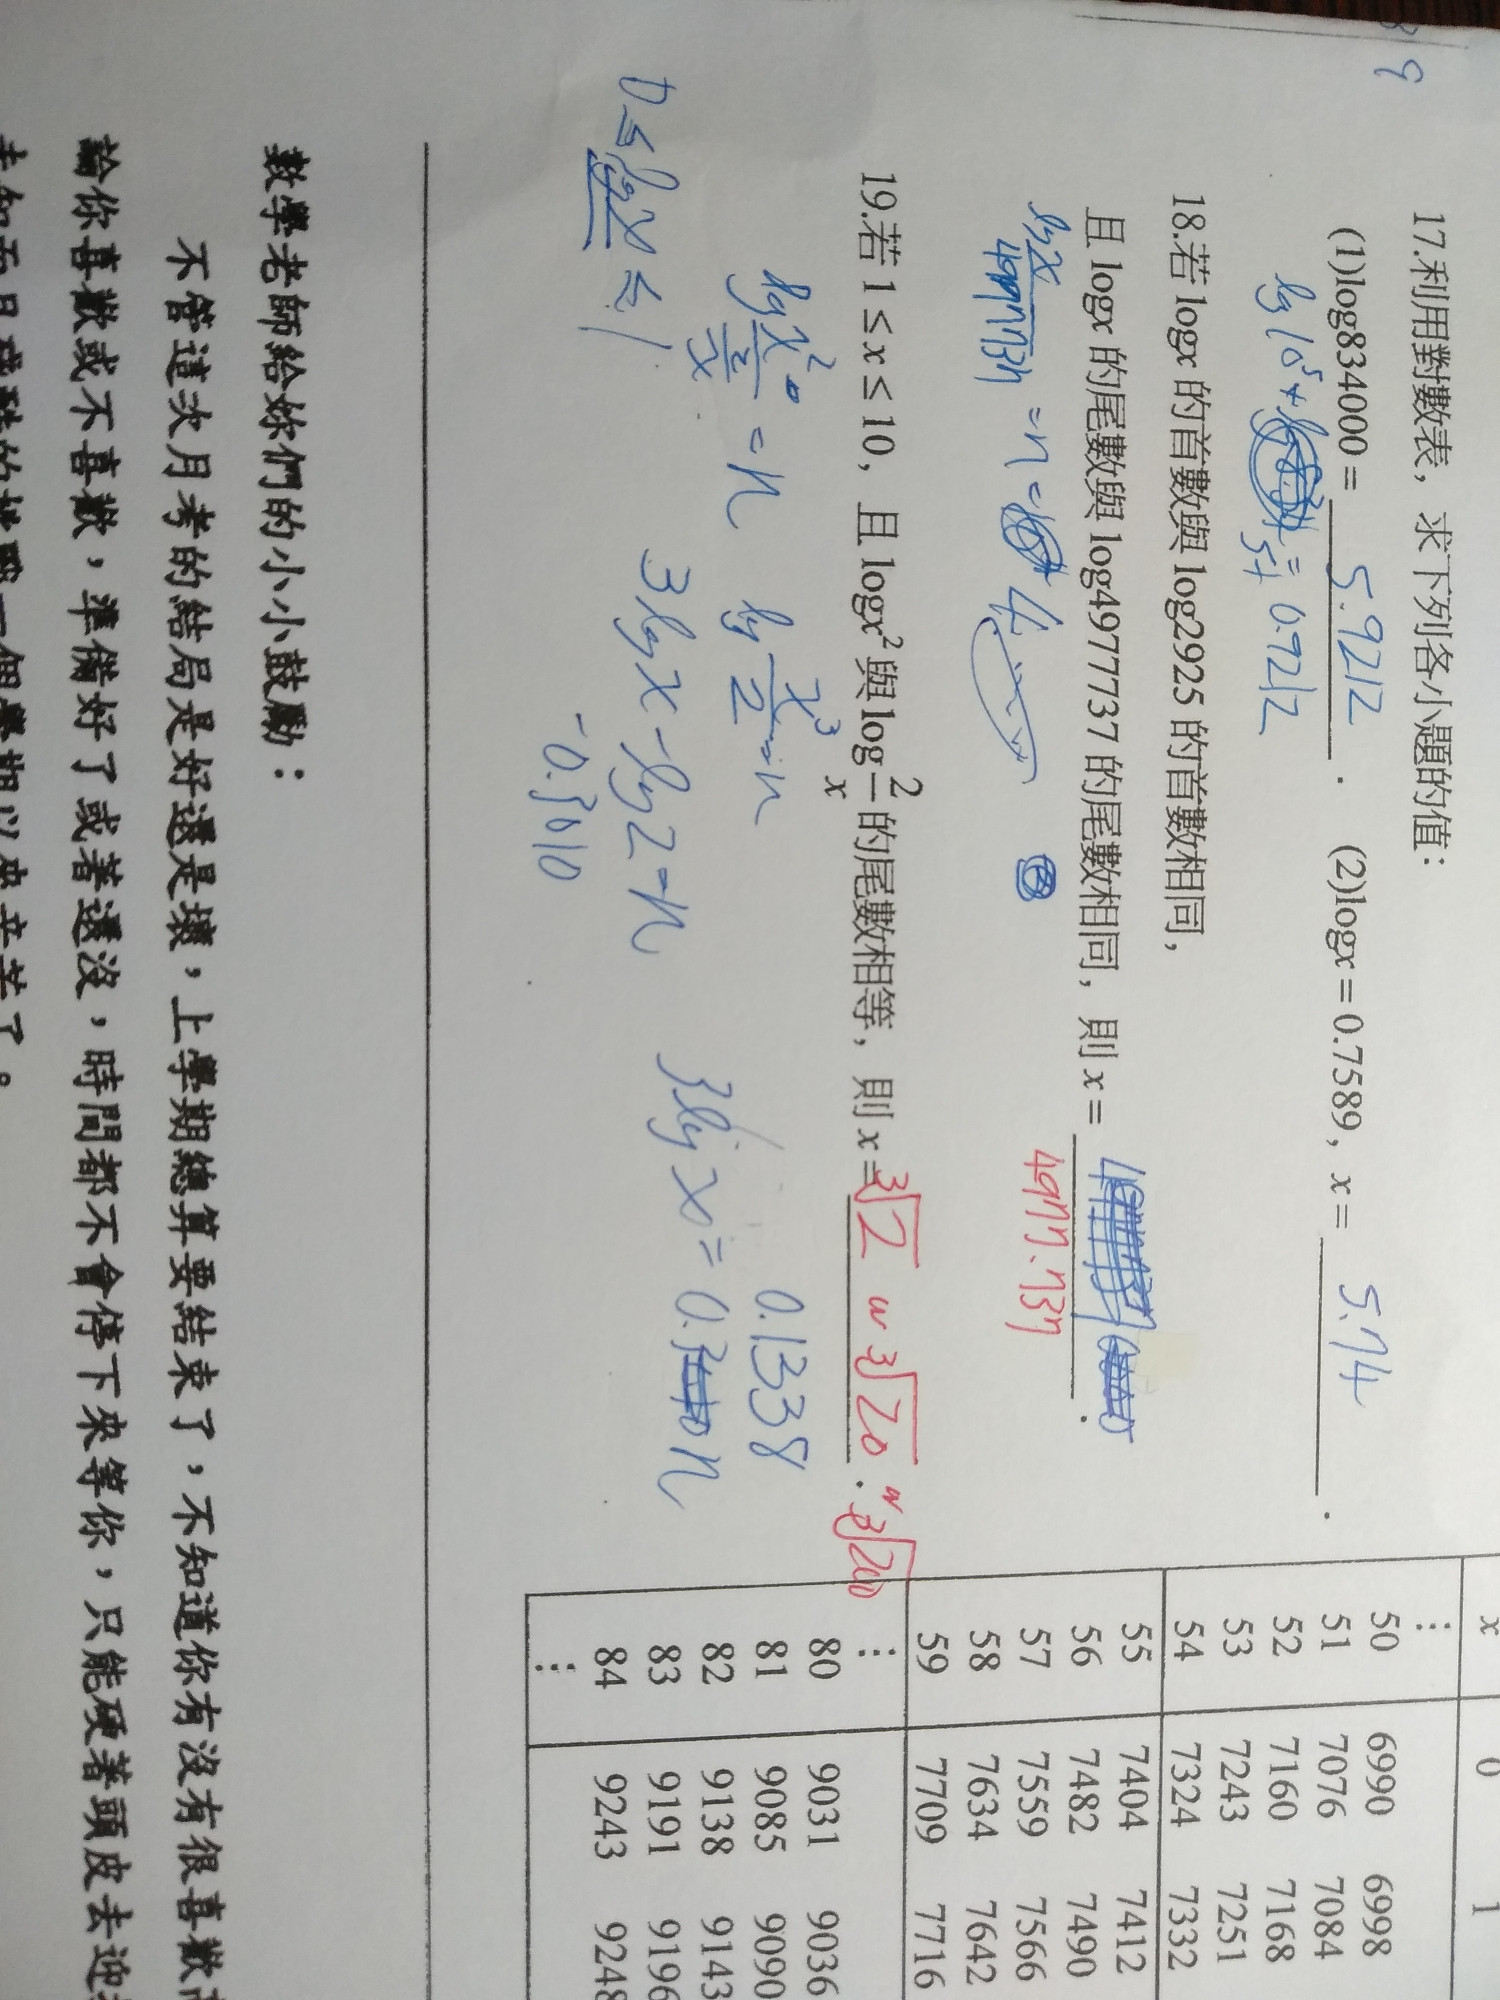 89
17.利用對數表，求下列各小題的值：
(1)log834000 = 5.9212 . (2)logx = 0.7589，x = 5.74 .
= 0.9212
18.若 logx 的首數與 log2925 的首數相同，
且 logx 的尾數與 log4977737 的尾數相同，則 x = .
4977.737
19.若 1 ≤ x ≤ 10，且 logx² 與 log 2/x 的尾數相等，則 x = ³√2 or ³√20 . or ³√200
log x²/(2/x) = n log x³/2 = n 0.1338
0 ≤ log x ≤ 1 3log x - log 2 = n 3log x = 0.3 n
-0.3010
x 0 1
⋮
50 6990 6998
51 7076 7084
52 7160 7168
53 7243 7251
54 7324 7332
55 7404 7412
56 7482 7490
57 7559 7566
58 7634 7642
59 7709 7716
⋮
80 9031 9036
81 9085 9090
82 9138 9143
83 9191 9196
84 9243 9248
⋮
數學老師給妳們的小小鼓勵：
不管這次月考的結局是好還是壞，上學期總算要結束了，不知道你有沒有很喜歡
論你喜歡或不喜歡，準備好了或著還沒，時間都不會停下來等你，只能硬著頭皮去迎
一個學期以來辛苦了。